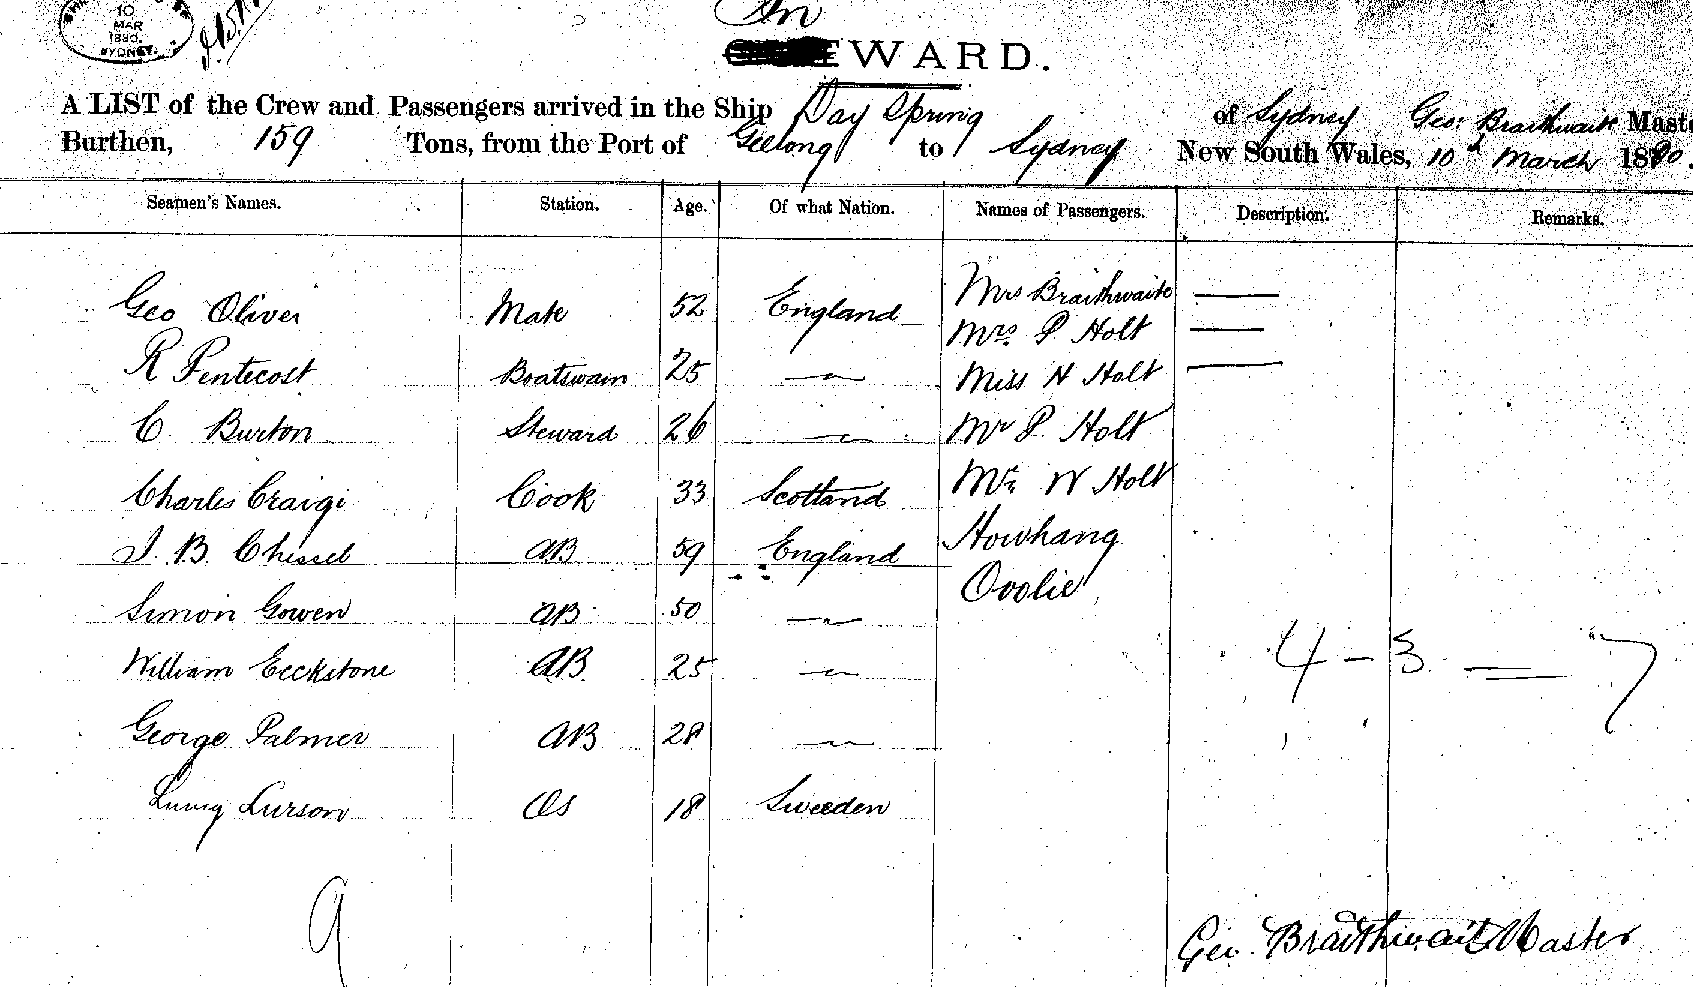 10
MAR
1880.
SYDNEY.
In
WARD.
A LIST of the Crew and Passengers arrived in the Ship Day Spring of Sydney Geo. Braithwaite Maste
Burthen, 159 Tons, from the Port of Geelong to Sydney New South Wales, 10th March 1880.
Seamen's Names. Station. Age. Of what Nation. Names of Passengers. Description. Remarks.
Geo Oliver Mate 52 England Mrs Braithwaite —
Mrs. P Holt —
R Pentecost Boatswain 25 — Miss H Holt —
C. Burton Steward 26 — Mr P. Holt
Charles Craigi Cook 33 Scotland Mr. W Holt
J. B. Chissel AB 59 England Howhang
Ovolie
Simon Gowen AB 50 —
William Eeckstone AB 25 —
4 – 3 = 7
George Palmer AB 28 —
Lurson OS 18 Sweeden
9
Geo. Braithwaite Master